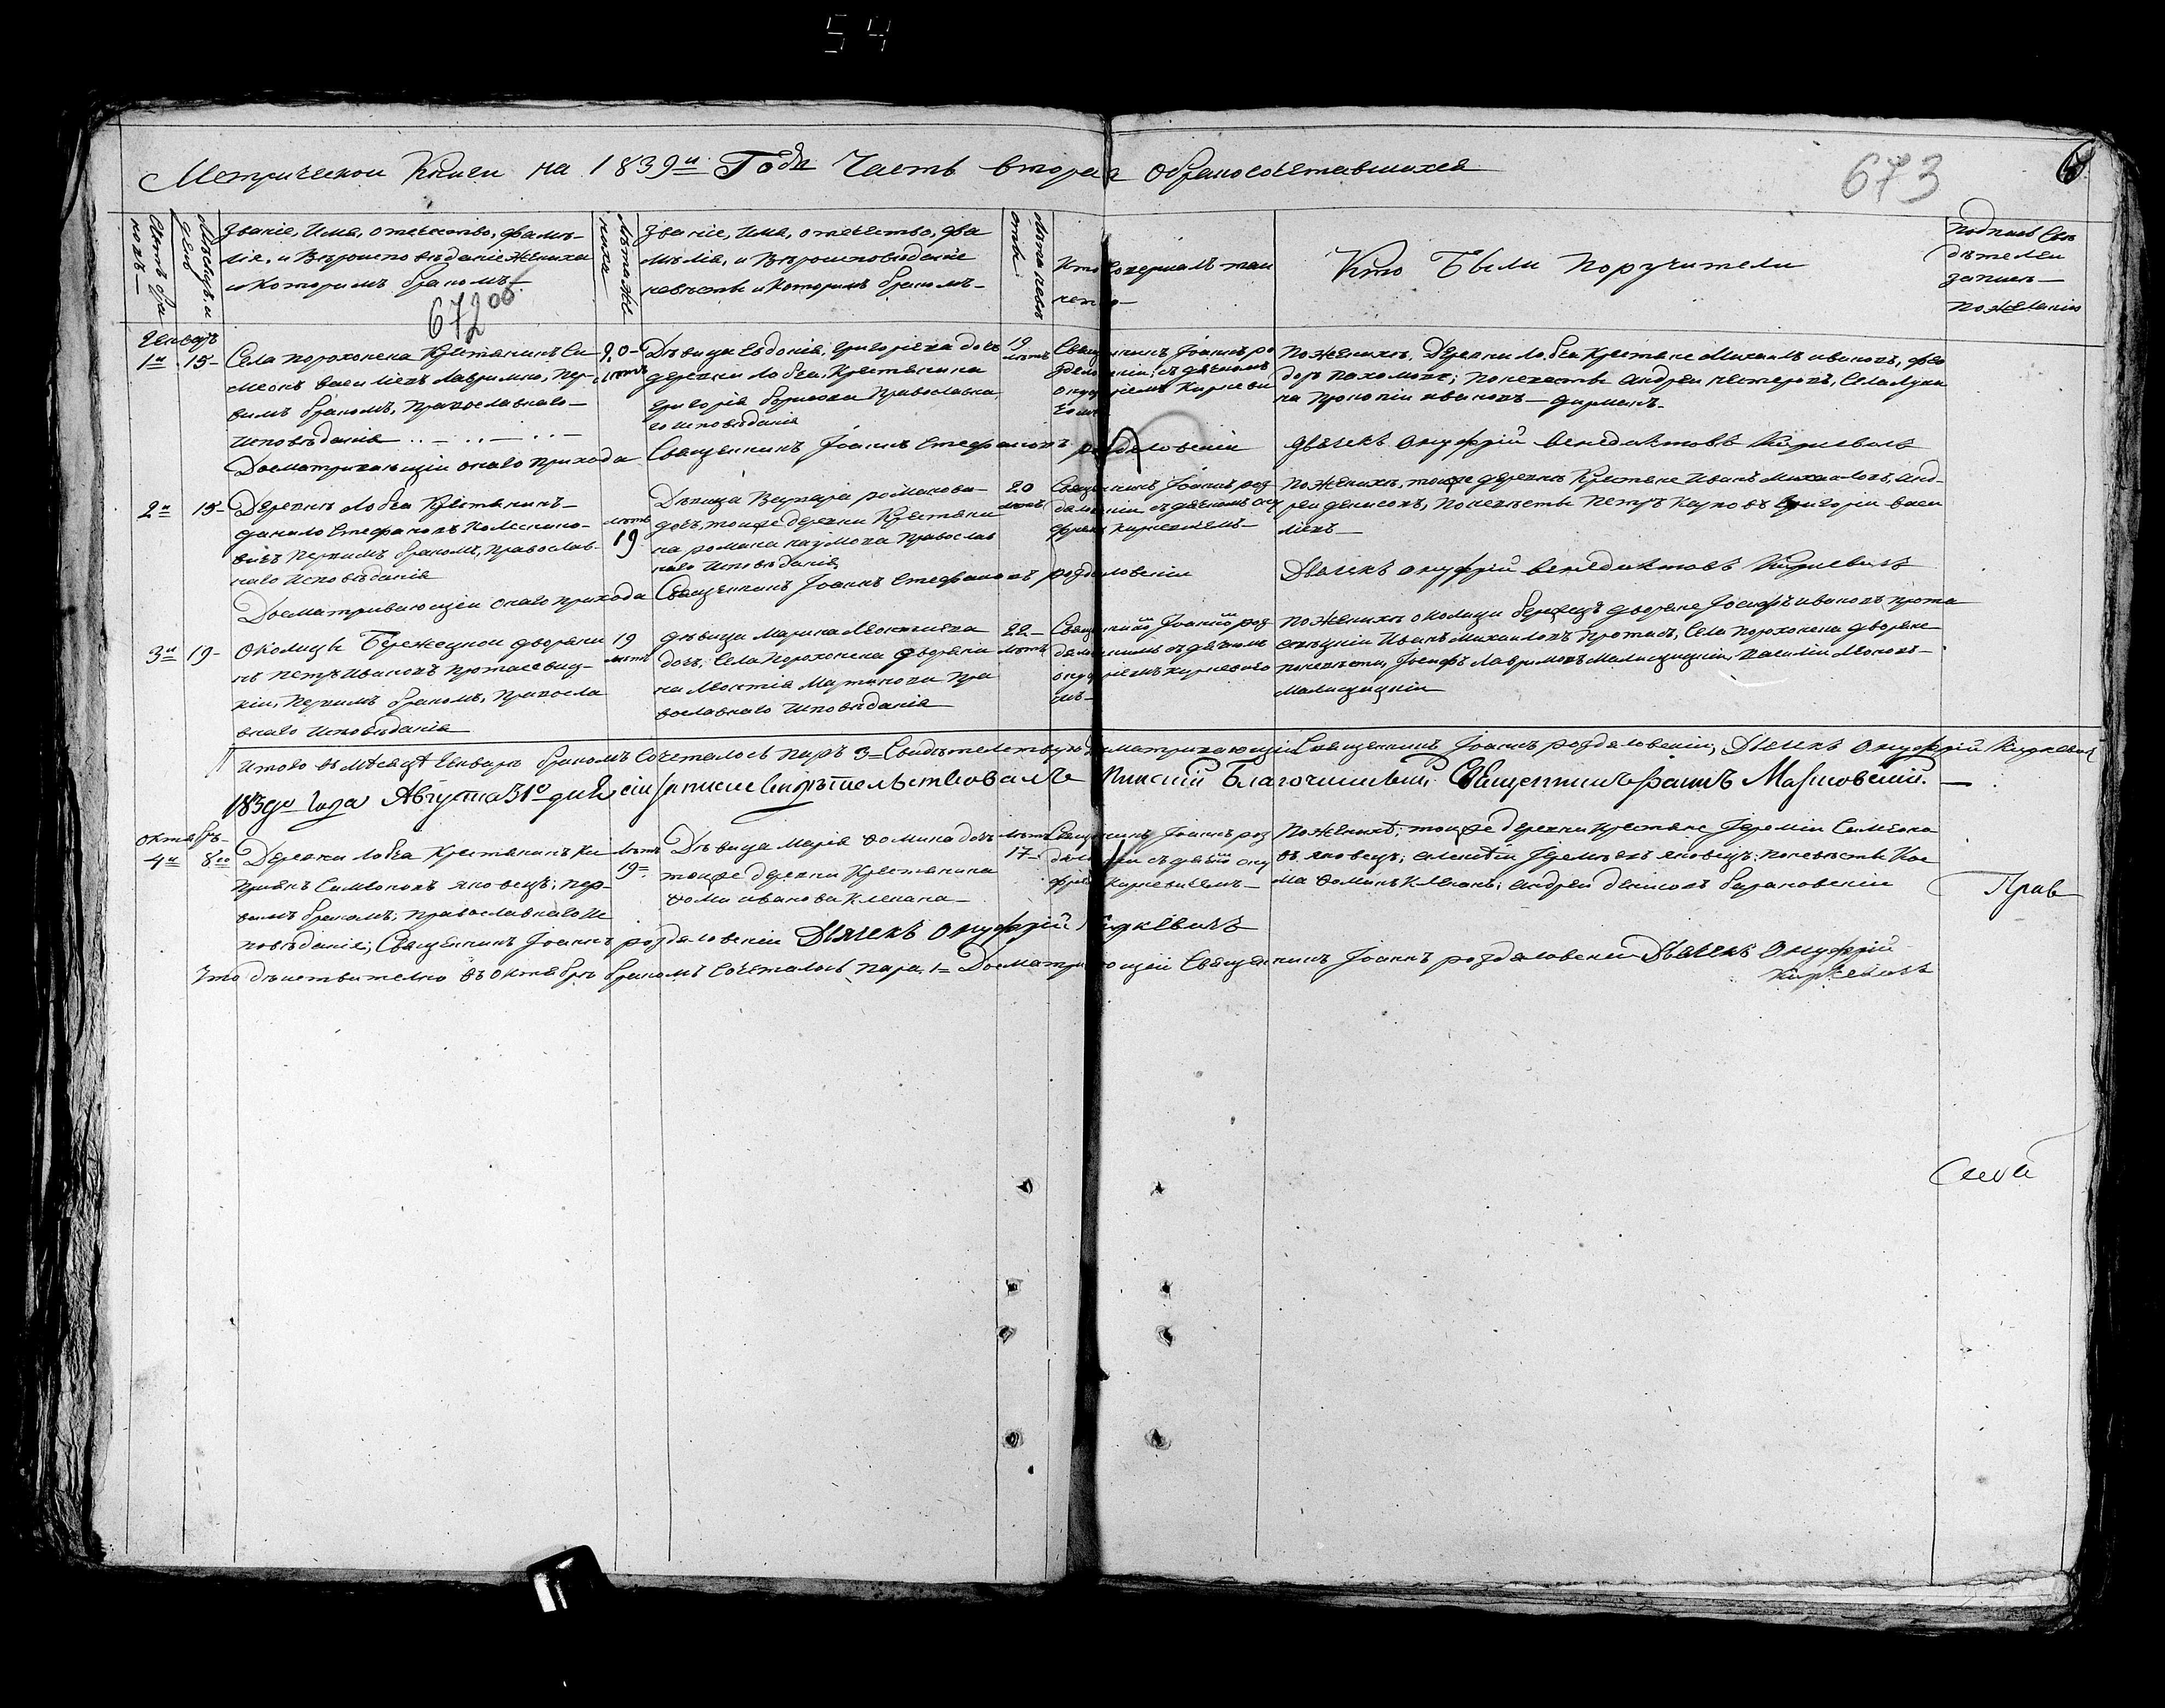 54
Метрической Книги на 1839й Годъ Часть вторая обракосочетавшихся
673
Счетъ бра
ковъ —
Мѣсяцъ и
день
Званіе, Имя, отечество, фамѣ-
лія, и Вѣроисповѣданіе Жениха
и Которимъ бракомъ —
672 об.
Лѣта же
ниха
Званіе, имя, отечество, фа
мѣлія, и Вѣроисповѣданіе
невѣсты и Которимъ бракомъ —
Лѣта невѣ
сты
Кто совершалъ таи
нство —
Кто Были поручители
подписъ Сви
дѣтелей
записъ —
по желанію
Генваръ
1й 15 —
Села порохонска Крестянинъ Си
меонъ василіевъ Лавримко, пер-
вимъ бракомъ, Православнаго —
исповѣданія
20 — лѣтъ
Дѣвица Евдокія, григоріева дочъ
деревни Лобча, Крестянина
Григорія борисова Православна
го исповѣданія
19 лѣтъ
Священникъ Іоаннъ ро
здяловскій, съ дячкомъ
онуфріемъ Киркеви
чомъ
по женихѣ, Деревни Лобча Крестяне Михаилъ ивановъ, фео
доръ пахомовъ; по невестѣ андрей нестеровъ, Села Луни
на Прокопій ивановъ —
Досматривающій онаго прихода Священникъ Іоаннъ Стефановъ роздяловскій Дьячекъ онуфрій венедиктовъ Киркевичъ
2й 15 —
Деревни Лобча Крестянинъ —
данило Стефановъ
первимъ бракомъ, православ-
наго исповѣданія
лѣтъ 19
Дѣвица романова —
дочъ, тоижѣ деревни Крестяни
на романа наумова православ
наго исповѣданія
20 лѣтъ
Священникъ Іоаннъ роз
дяловскій съ дячкомъ ону
фріемъ Киркевичемъ —
по женихѣ, тоиже деревни Крестяне Иванъ михаиловъ, анд-
рей денисовъ, по невѣстѣ Петръ Карповъ Григорій васи
ліевъ —
Досматривающій онаго прихода Священникъ Іоаннъ Стефановъ роздяловскій Дьячекъ онуфрій венедиктовъ Киркевичъ
3й 19 —
околици Бережецкой дворяни
нъ петръ Ивановъ Протасевиц-
кій, первимъ бракомъ, правосла
внаго исповѣданія
19 лѣтъ
дѣвица марина Леонтиева
дочъ, Села Порохонска дворяни
на Леонтія Мартинова пра
вославнаго исповѣданія
22 — лѣтъ
Священникъ Іоаннъ роз
дяловскимъ съ дячкомъ
онуфріемъ киркевиче
мъ —
по женихѣ околици бережцѣ дворяне Іосифъ ивановъ прота
севицкій Иванъ Михаиловъ Протасъ, Села Порохонска дворяне
по невѣсти, Іосифъ Лавримовъ Малищицкій, василій Леоновъ —
Малищицкій
Итого въ мѣсяцѣ Генварѣ бракомъ Сочеталось паръ 3 — Свидѣтелствую Досматривающій Священникъ Іоаннъ роздяловскій, Дьячекъ Онуфрій Киркевичъ
1839го Года Августа 31го дня сіи записи Свидѣтельствовалъ Пинскій Благочинный Священникъ
октябръ
4й 8го
Деревни лобча Крестянинъ Ки
пріянъ Симеоновъ яковецъ; пер-
вимъ бракомъ; православнаго ис
повѣданія;
лѣтъ 19 —
Дѣвица Марія Ѳомина дочъ
тоиже деревни Крестянина
Ѳоми иванова Клекача —
лѣтъ 17 —
Священникъ Іоаннъ роз
дяловскій съ дячкомъ ону
фріемъ Киркевичемъ —
По женихѣ; тоиже деревни крестяне Іеремій Симеоно
въ яковецъ; алексѣй Іереміевъ яковецъ; по невѣстѣ Кос
ма Ѳоминъ Клекачъ; андрей денисовъ барановскій
Священникъ Іоаннъ роздяловскій Дьячекъ Онуфрій Киркевичъ
Что дѣиствително въ октябрѣ бракомъ Сочеталась, пара, 1 — Досматривающій Священникъ Іоаннъ роздяловскій Дьячекъ Онуфрій
Киркевичъ